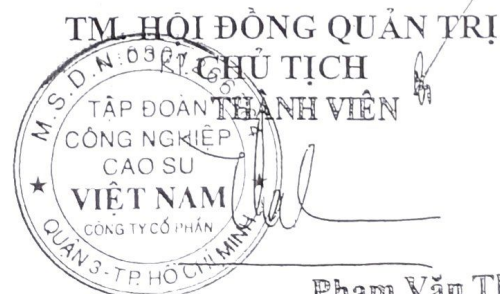 TM. HỘI ĐỒNG QUẢN TRỊ
CHỦ TỊCH
THÀNH VIÊN
M.S.D.N:
TẬP ĐOÀN
CÔNG NGHIỆP
CAO SU
VIỆT NAM
CÔNG TY CỔ PHẦN
QUẬN 3 - TP. HỒ CHÍ MINH
Phạm Văn